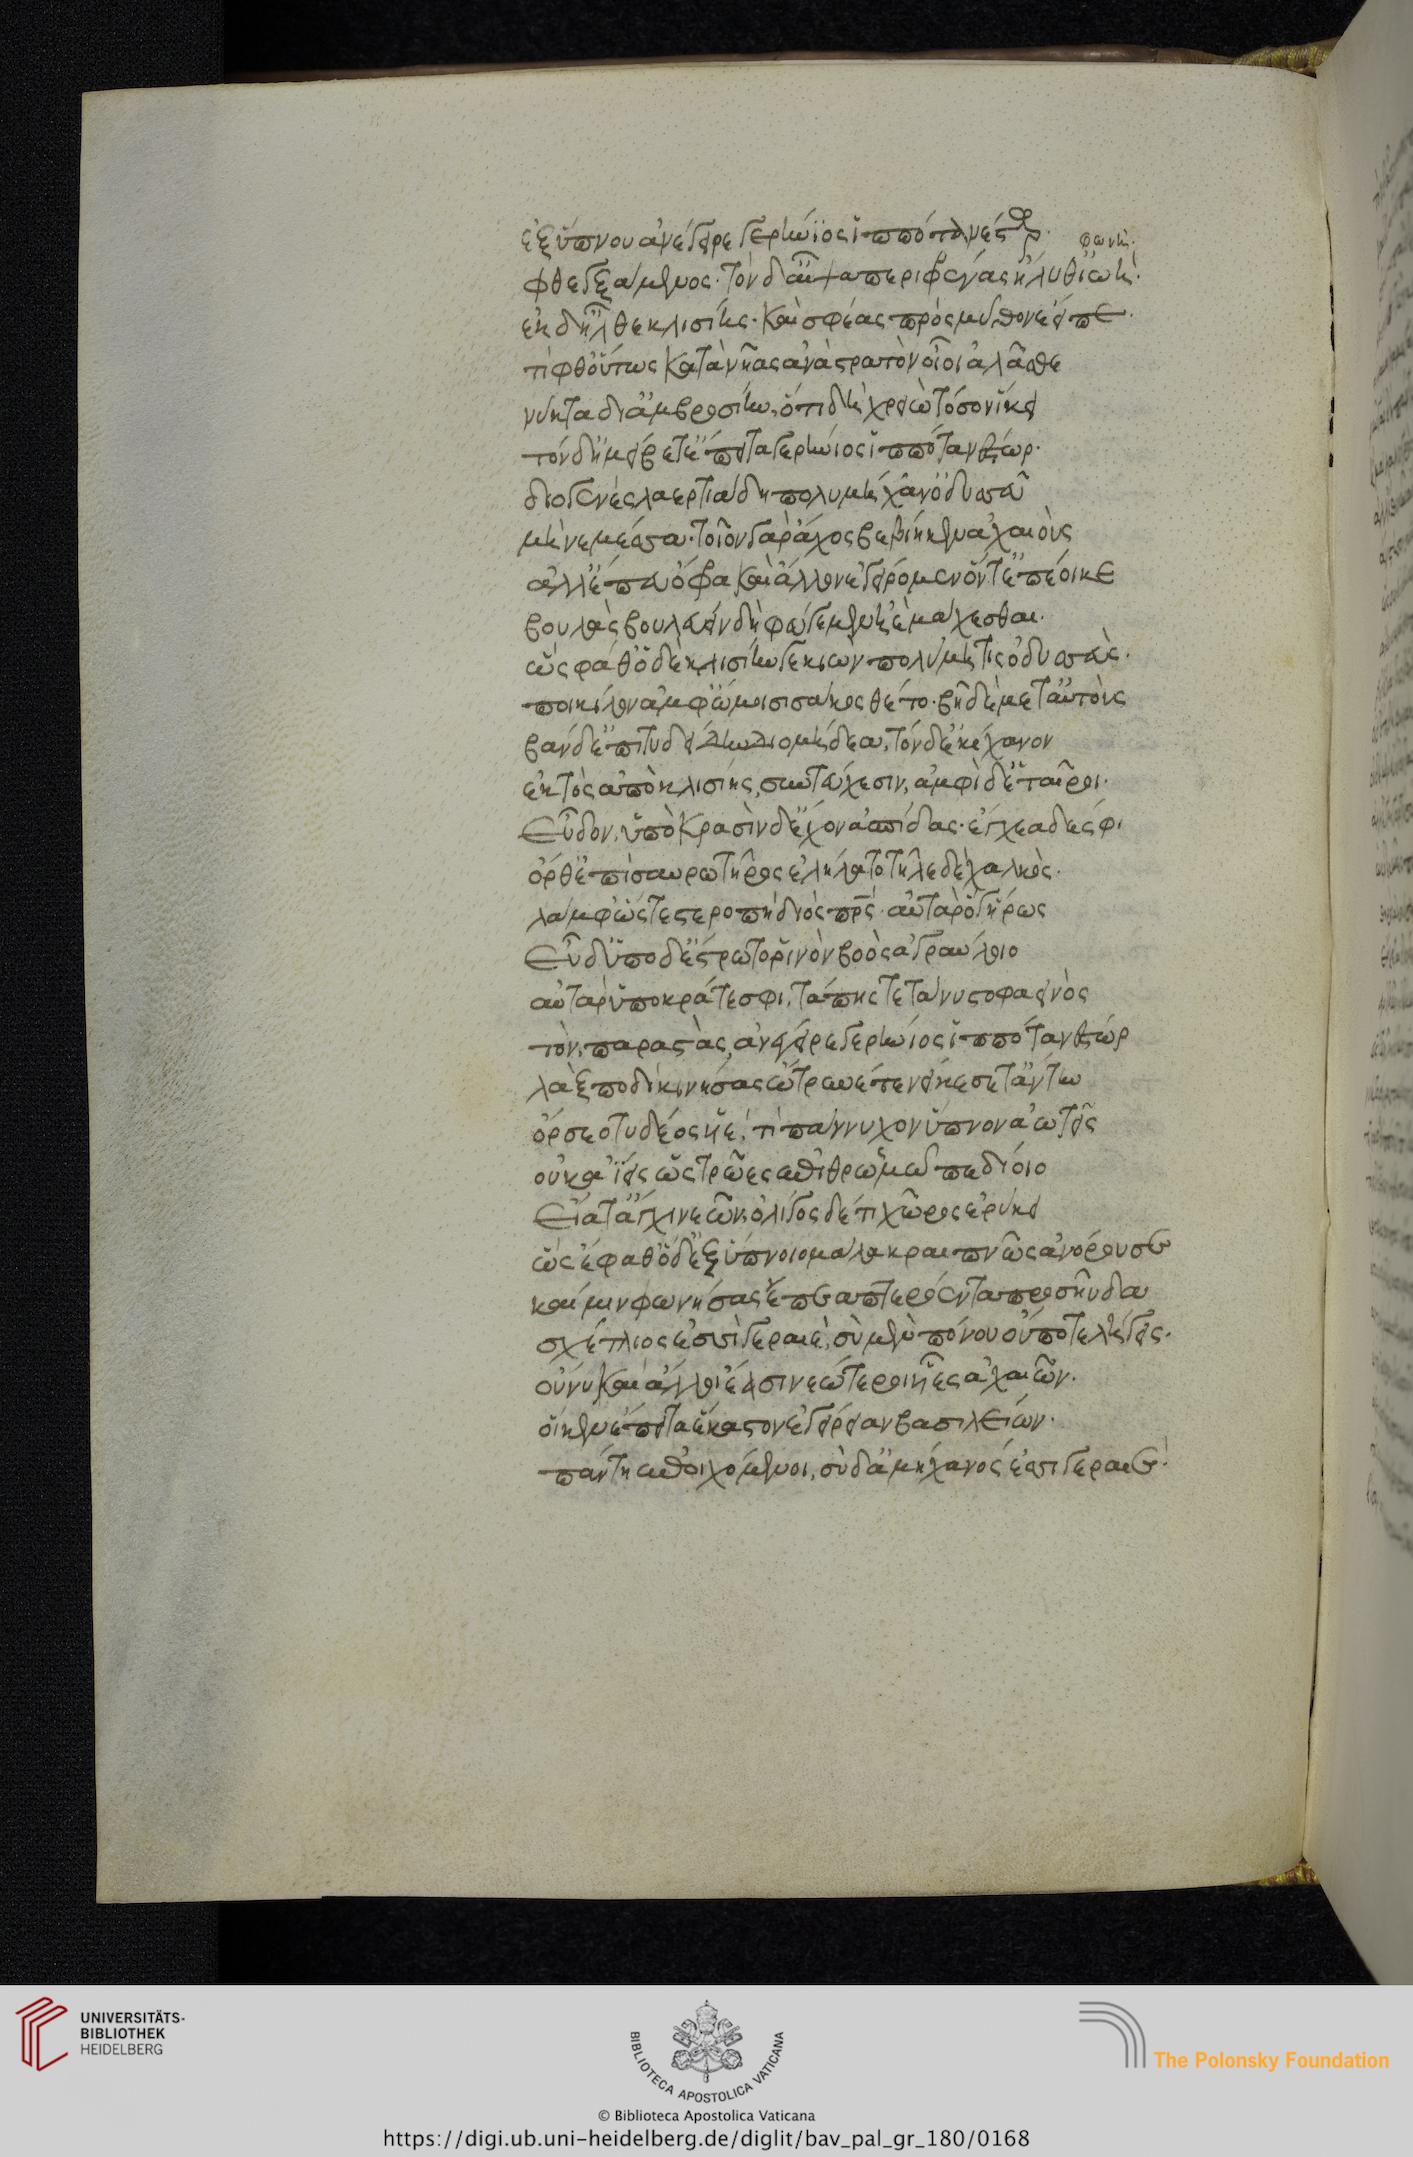 ἐξ ὕπνου ἀνέγειρε γερήνιος ἱππότα νέστωρ.
φωνή.
φθεγξάμενος. τὸν δ' αἶψα περὶ φρένας ἤλυθ' ἰωή.
ἐκ δ' ἦλθε κλισίης. καὶ σφέας πρὸς μῦθον ἔειπε.
τίφθ' οὕτως κατὰ νῆας ἀνὰ στρατὸν οἶοι ἀλᾶσθε
νύκτα δι' ἀμβροσίην, ὅτι δὴ χρειὼ τόσον ἵκει
τὸν δ' ἠμείβετ' ἔπειτα γερήνιος ἱππότα νέστωρ.
διογενὲς λαερτιάδη πολυμήχαν' ὀδυσσεῦ
μὴ νεμέσσα. τοῖον γὰρ ἄχος βεβίηκεν ἀχαιούς
ἀλλ' ἕπευ ὄφρα καὶ ἄλλον ἐγείρομεν ὅν τ' ἐπέοικε
βουλὰς βουλεύειν ἢ φευγέμεν ἠὲ μάχεσθαι.
ὣς φάθ' ὁ δὲ κλισίην δε κιὼν πολύμητις ὀδυσσεὺς.
ποικίλον ἀμφ' ὤμοισι σάκος θέτο. βῆ δὲ μετ' αὐτοὺς
βὰν δ' ἐπὶ τυδείδην διομήδεα, τὸν δ' ἐκίχανον
ἐκτὸς ἀπὸ κλισίης, σὺν τεύχεσιν, ἀμφὶ δ' ἑταῖροι.
Εὗδον, ὑπὸ κρασὶν δ' ἔχον ἀσπίδας. ἔγχεα δέ σφι
ὄρθ' ἐπὶ σαυρωτῆρος ἐλήλατο τῆλε δὲ χαλκὸς.
λάμφ' ὥς τε στεροπὴ διὸς πρς. αὐτὰρ ὅ γ' ἥρως
Εὗδ' ὑπὸ δ' ἔστρωτο ῥινὸν βοὸς ἀγραύλοιο
αὐτὰρ ὑπὸ κράτεσφι, τάπης τετάνυστο φαεινὸς
τὸν παραστὰς, ἀνέγειρε γερήνιος ἱππότα νέστωρ
λὰξ ποδὶ κινήσας ὤτρυνέ τε νείκεσέ τ' ἄντην
ὄρσεο τυδέος υἱέ, τί πάννυχον ὕπνον ἀωτεῖς
οὐκ ἀΐεις ὡς τρῶες ἐπὶ θρωσμῷ πεδίοιο
Εἵατ' ἄγχι νεῶν, ὀλίγος δέ τι χῶρος ἐρύκει
ὣς ἔφαθ' ὁ δ' ἐξ ὕπνοιο μάλα κραιπνῶς ἀνόρουσε
καί μιν φωνήσας ἔπεα πτερόεντα προσηύδα
σχέτλιος ἐσσὶ γεραιέ, σὺ μὲν πόνου οὔποτε λήγεις.
οὔ νυ καὶ ἄλλοι ἔασι νεώτεροι υἷες ἀχαιῶν.
οἵ κεν ἔπειτα ἕκαστον ἐγείρειαν βασιλείων.
πάντη ἐποιχόμενοι, σὺ δ' ἀμήχανός ἐσσι γεραιέ.
UNIVERSITÄTS-
BIBLIOTHEK
HEIDELBERG
BIBLIOTECA APOSTOLICA VATICANA
The Polonsky Foundation
© Biblioteca Apostolica Vaticana
https://digi.ub.uni-heidelberg.de/diglit/bav_pal_gr_180/0168